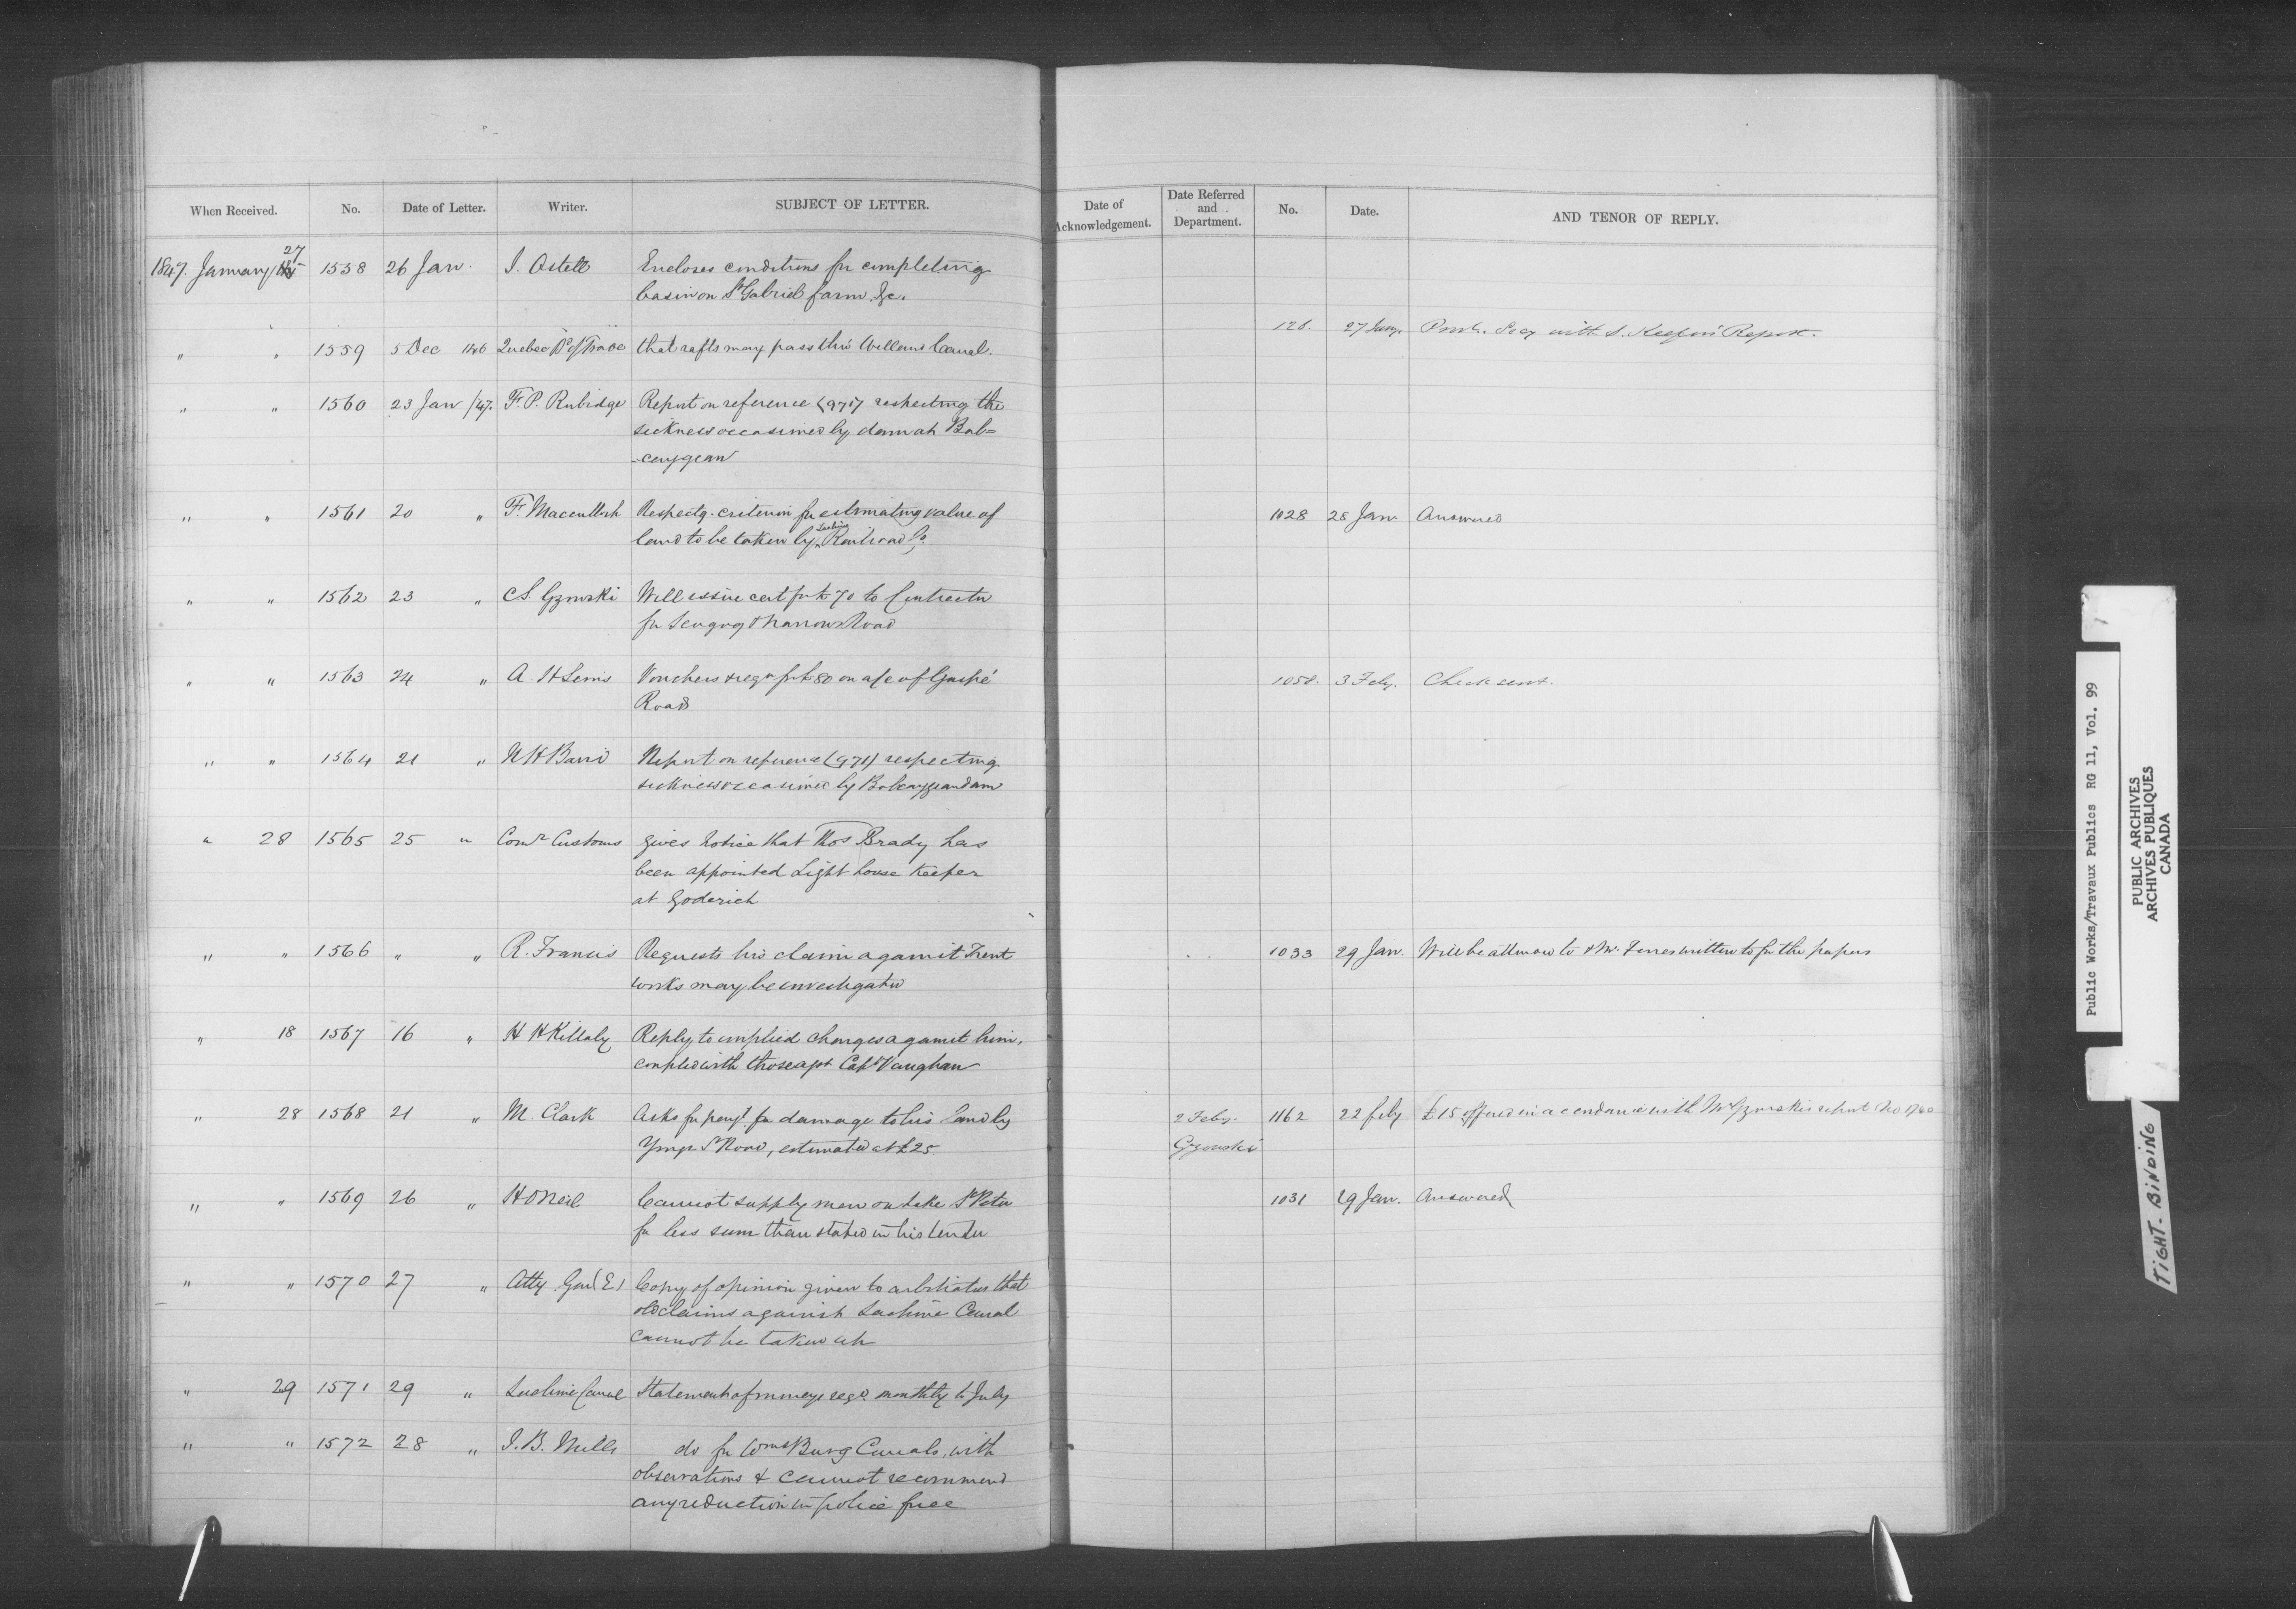 When Received. No. Date of Letter. Writer. SUBJECT OF LETTER. Date of Acknowledgement. Date Referred and Department. No. Date. AND TENOR OF REPLY.
1847. January 27 1558 26 Jan. J. Ostell Encloses conditions for completing
basin on St Gabriel farm &c.
" " 1559 5 Dec 1846 Quebec Bd of Trade that rafts may pass thro' Welland Canal. 128. 27 Jany. Prov. Secy with S. Keefer's Report.
" " 1560 23 Jan /47. F. P. Rubidge Report on reference (971) respecting the
sickness occasioned by dam at Bob=
-caygean
" " 1561 20 " F. Macculloch Respectg. criterion for estimating value of 1028 28 Jan Answered
land to be taken by Lachine Railroad Co.
" " 1562 23 " C.S. Gzowski Will issue cert for £70 to Contractor
for Scugog & Narrows Road
" " 1563 24 " A. H. Lewis Vouchers & reqn for £80 on a/c of Gaspé 1058. 3 Feby. Check sent.
Road
" " 1564 21 " N H Baird Report on reference (971) respecting
sickness occasioned by Bobcaygean dam
" 28 1565 25 " Comr Customs gives notice that Thos Brady has
been appointed Light house Keeper
at Goderich
" " 1566 " " R. Francis Requests his claim against Trent 1033 29 Jan. Will be attended to & Mr. Ferres written to for the papers
works may be investigated
" 18 1567 16 " H H Killaly Reply to implied charges against him,
coupled with those agst Capt Vaughan
" 28 1568 21 " M. Clark Asks for payt. for damage to his land by 2 Feby. 1162 22 feby £15 offered in accordance with Mr Gzowski's report (No 1740
Yonge St Road, estimated at £25 Gzowski
" " 1569 26 " H O'Neil Cannot supply men on Lake St Peter 1031 29 Jan. Answered
for less sum than stated in his tender
" " 1570 27 " Atty Genl (E) Copy of opinion given to arbitrators that
old claims against Lachine Canal
cannot be taken up
" 29 1571 29 " Lachine Canal Statement of moneys reqd. monthly to July
" " 1572 28 " J. B. Mills do for Wmsburg Canals, with
observations & cannot recommend
any reduction in police force
Public Works/Travaux Publics RG 11, Vol. 99
PUBLIC ARCHIVES
ARCHIVES PUBLIQUES
CANADA
TIGHT-BINDING